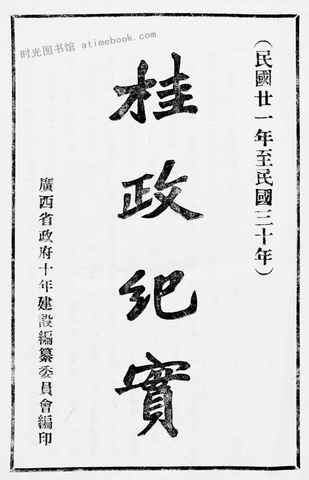 (民國廿一年至民國三十年)
桂政紀實
廣西省政府十年建設編纂委員會編印
时光图书馆 atimebook.com